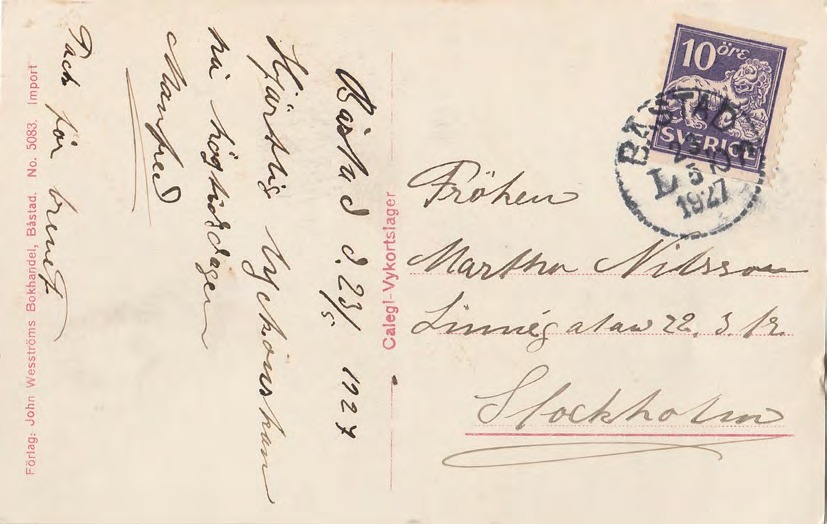 Båstad d. 23/5 1927
Hjärtlig lyckönskan
på högtidsdagen
Manfred
Tack för brevet
Förlag: John Wesströms Bokhandel, Båstad. No. 5083. Import
Calegi-Vykortslager
10 ÖRE
SVERIGE
BÅSTAD
23 5
1927
L
Fröken
Martha Nilsson
Linnégatan 22. 3 tr.
Stockholm